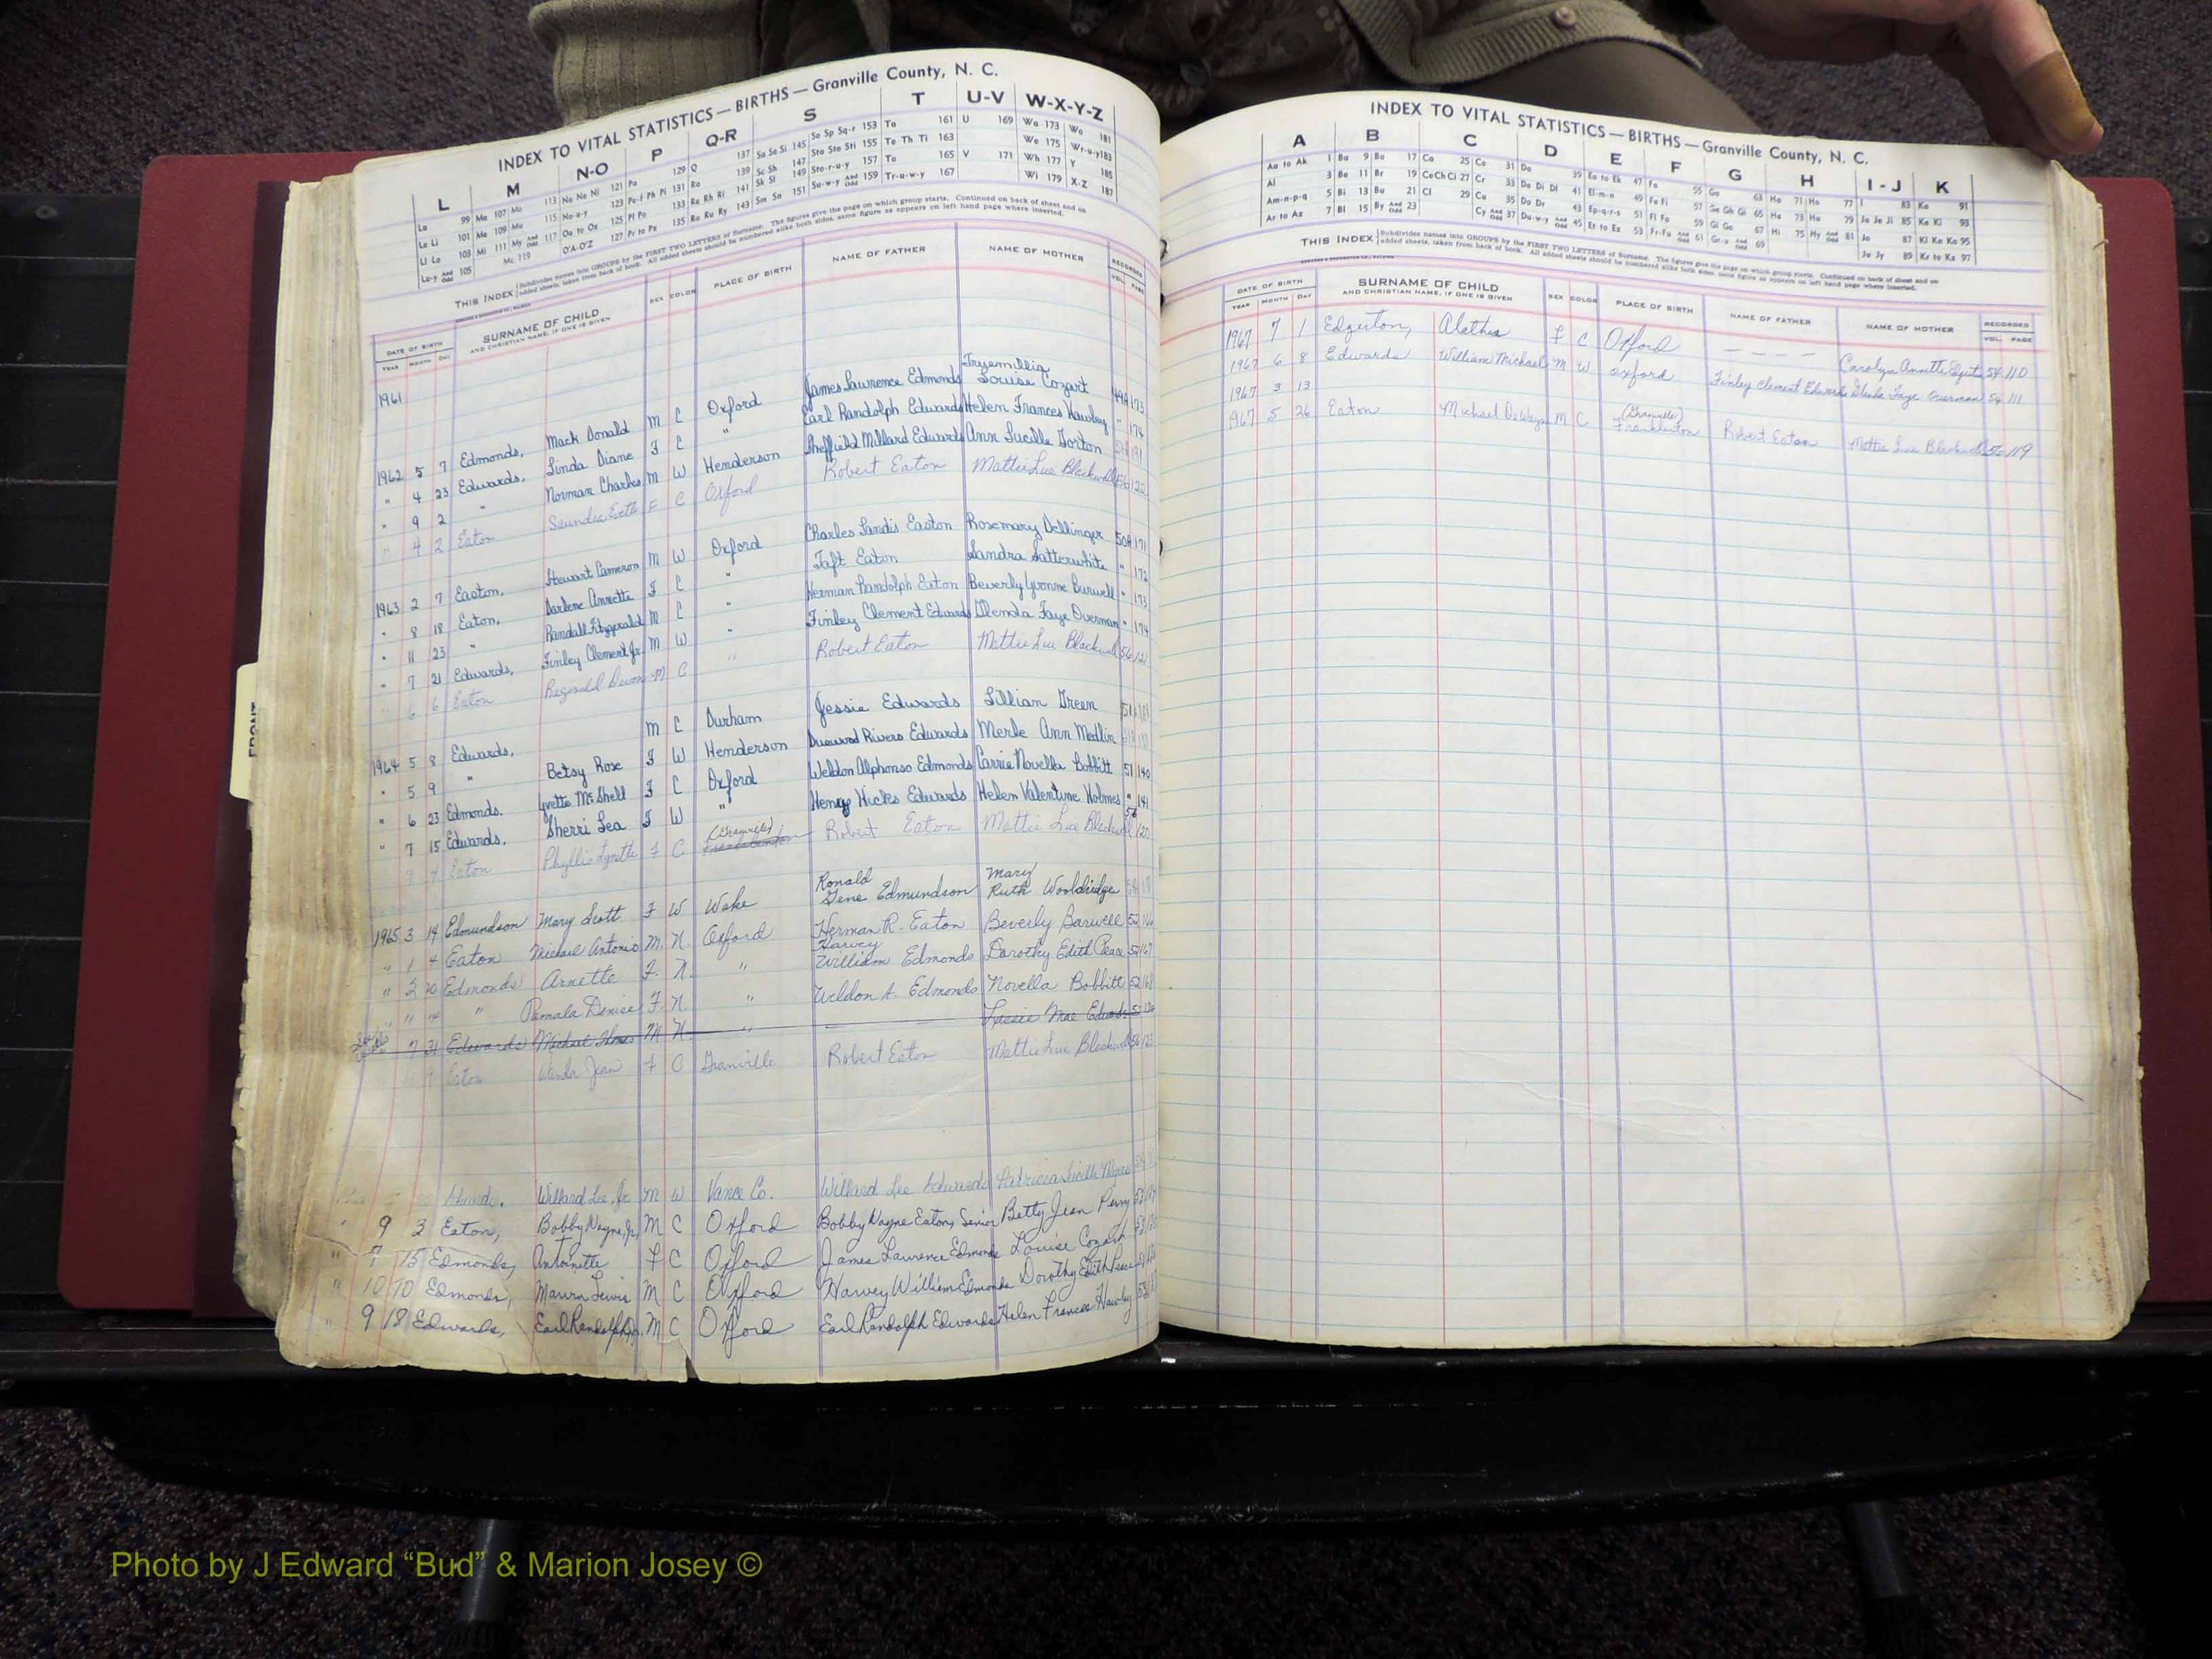 INDEX TO VITAL STATISTICS — BIRTHS — Granville County, N. C.
L M N-O P Q-R S T U-V W-X-Y-Z
La 99 Ma 107 Mo 113 Na Ne Ni 121 Pa 129 Q 137 Sa Se Si 145 So Sp Sq-r 153 Ta 161 U 169 Wa 173 Wo 181
Le Li 101 Me 109 Mu 115 No-u-y 123 Pe-f Ph Pi 131 Ra 139 Sc Sh 147 Sta Ste Sti 155 Te Th Ti 163 We 175 Wr-u-y 183
Ll Lo 103 Mi 111 My And Odd 117 Oa to Ox 125 Pl Po 133 Re Rh Ri 141 Sk Sl 149 Sto-r-u-y 157 To 165 V 171 Wh 177 Y 185
Lu-y And Odd 105 Mc 119 O'A-O'Z 127 Pr to Px 135 Ro Ru Ry 143 Sm Sn 151 Su-w-y And Odd 159 Tr-u-w-y 167 Wi 179 X-Z 187
THIS INDEX Subdivides names into GROUPS by the FIRST TWO LETTERS of Surname. The figures give the page on which group starts. Continued on back of sheet and on
added sheets, taken from back of book. All added sheets should be numbered alike both sides, same figure as appears on left hand page where inserted.
DATE OF BIRTH SURNAME OF CHILD SEX COLOR PLACE OF BIRTH NAME OF FATHER NAME OF MOTHER RECORDED
YEAR MONTH DAY AND CHRISTIAN NAME, IF ONE IS GIVEN VOL. PAGE
1961
1962 5 7 Edmonds, Mack Donald M C Oxford James Lawrence Edmonds Louise Cozart 49A 173
" 4 23 Edwards, Linda Diane F C " Earl Randolph Edwards Helen Frances Hawley " 174
" 9 2 " Norman Charles M W Henderson Sheffield Millard Edwards Ann Lucille 191
" 4 2 Eaton F C Oxford Robert Eaton Mattie Lue Blackwell 56 122
1963 2 7 Easton, Stewart Cameron M W Oxford Charles Landis Easton Rosemary Dellinger 50A 171
" 8 18 Eaton, Darlene Annette F C " Taft Eaton Sandra Satterwhite " 172
" 11 23 " Randall Fitzgerald M C " Herman Randolph Eaton Beverly Yvonne Burwell " 173
" 7 21 Edwards, Finley Clement Jr. M W " Finley Clement Edwards Glenda Faye Overman " 174
" 6 6 Eaton Reginald Devon M C " Robert Eaton Mattie Lue Blackwell 56 121
1964 5 8 Edwards, M C Durham Jessie Edwards Lillian Green 51
" 5 9 " Betsy Rose F W Henderson Durwood Rivers Edwards Merle Ann Medlin
" 6 23 Edmonds, Yvette McShell F C Oxford Weldon Alphonso Edmonds Carrie Novella Bobbitt 51 140
" 7 15 Edwards, Sherri Lea F W " Henry Hicks Edwards Helen Valentine Holmes " 141
Eaton Phyllis Lynette F C (Granville) Robert Eaton Mattie Lue Blackwell 56 120
1965 3 14 Edmundson Mary Scott F W Wake Ronald Gene Edmundson Mary Ruth Wooldridge
" 1 4 Eaton Michael Antonio M. N. Oxford Herman R. Eaton Beverly Barwell 52 166
" 2 20 Edmonds Arnette F. N. " Harvey William Edmonds Dorothy Edith Peace 52 167
" " " Pamala Denise F. N. " Weldon A. Edmonds Novella Bobbitt 52 168
7 31 Edwards Michael M N " Lessie Mae Edwards 52
Eaton Wanda Jean F C Granville Robert Eaton Mattie Lue Blackwell 56 123
Edwards, Willard Lee, Jr. M W Vance Co. Willard Lee Edwards Patricia Lucille
" 9 3 Eaton, Bobby Wayne, Jr. M C Oxford Bobby Wayne Eaton, Senior Betty Jean Perry 53
" 7 15 Edmonds, Antoinette F C Oxford James Lawrence Edmonds Louise Cozart 53
" 10 10 Edmonds, Lewis M C Oxford Harvey William Edmonds Dorothy Edith Peace
" 9 18 Edwards, Earl Randolph, Jr. M C Oxford Earl Randolph Edwards Helen Frances Hawley 53
INDEX TO VITAL STATISTICS — BIRTHS — Granville County, N. C.
A B C D E F G H I - J K
Aa to Ak 1 Ba 9 Bo 17 Ca 25 Co 31 Da 39 Ea to Ek 47 Fa 55 Ga 63 Ha 71 Ho 77 I 83 Ka 91
Al 3 Be 11 Br 19 Ce Ch Ci 27 Cr 33 De Di Dl 41 El-m-n 49 Fe Fi 57 Ge Gh Gi 65 He 73 Hu 79 Ja Je Ji 85 Ke Ki 93
Am-n-p-q 5 Bi 13 Bu 21 Cl 29 Cu 35 Do Dr 43 Ep-q-r-s 51 Fl Fo 59 Gl Go 67 Hi 75 Hy And Odd 81 Jo 87 Kl Kn Ko 95
Ar to Az 7 Bl 15 By And Odd 23 Cy And Odd 37 Du-w-y And Odd 45 Et to Ez 53 Fr-Fu And Odd 61 Gr-u And Odd 69 Ju Jy 89 Kr to Kz 97
THIS INDEX Subdivides names into GROUPS by the FIRST TWO LETTERS of Surname. The figures give the page on which group starts. Continued on back of sheet and on
added sheets, taken from back of book. All added sheets should be numbered alike both sides, same figure as appears on left hand page where inserted.
DATE OF BIRTH SURNAME OF CHILD SEX COLOR PLACE OF BIRTH NAME OF FATHER NAME OF MOTHER RECORDED
YEAR MONTH DAY AND CHRISTIAN NAME, IF ONE IS GIVEN VOL. PAGE
1967 7 1 Edgerton, Alethia F C Oxford – – – – Carolyn Annette 54 110
1967 6 8 Edwards William Michael M W Oxford Finley Clement Edwards Glenda Faye Overman 54 111
1967 3 13
1967 5 26 Eaton Michael DeWayne M C (Granville) Franklinton Robert Eaton Mattie Lue Blackwell 56 119
FRONT
Photo by J Edward “Bud” & Marion Josey ©